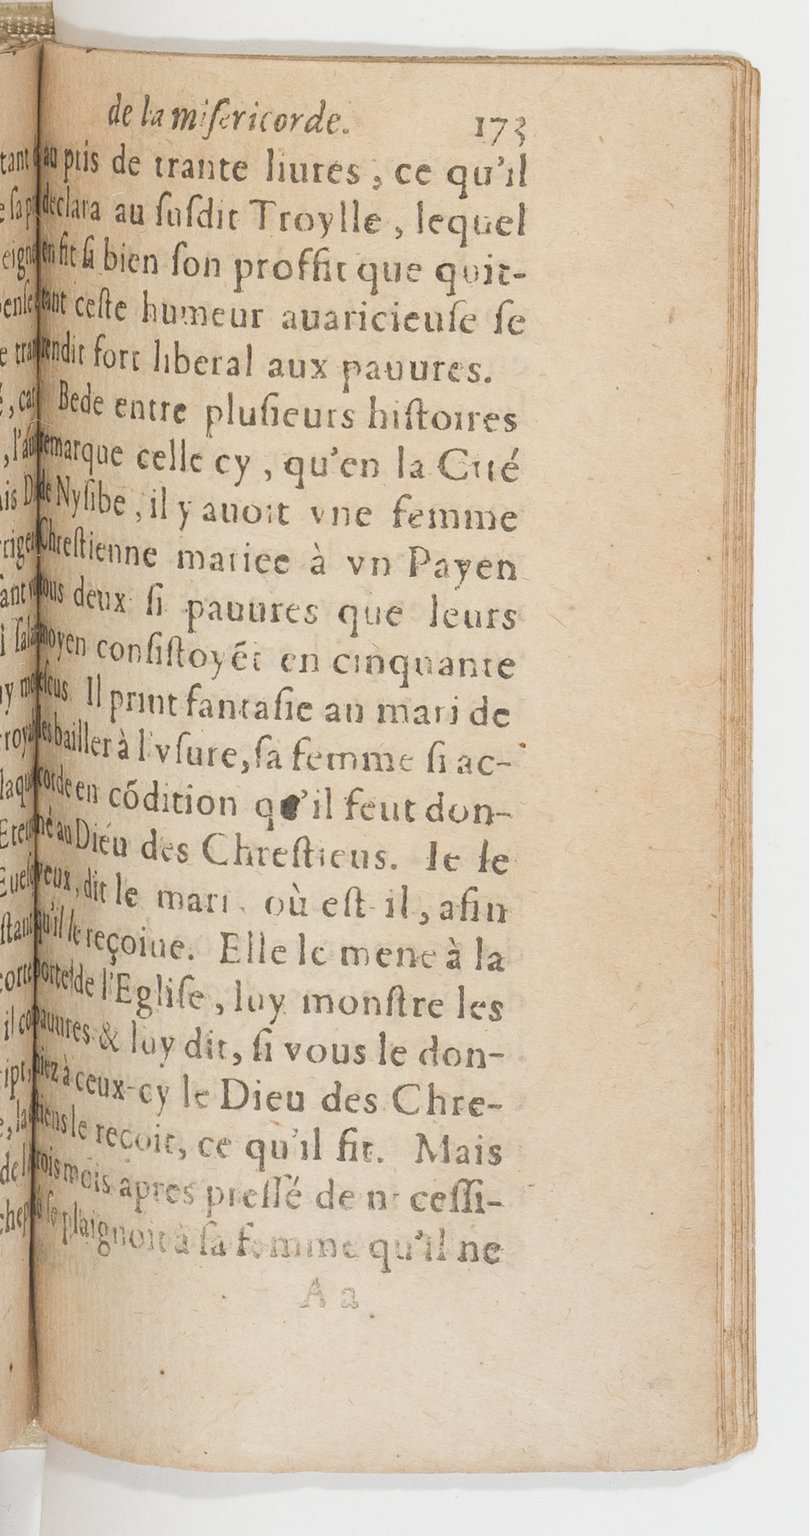 de la miſericorde. 173
au pris de trante liures, ce qu'il
declara au ſuſdit Troylle, lequel
en fit ſi bien ſon proffit que quit-
tant ceſte humeur auaricieuſe ſe
rendit fort liberal aux pauures.
Bede entre pluſieurs hiſtoires
remarque celle cy, qu'en la Cité
de Nyſibe, il y auoit vne femme
Chreſtienne mariee à vn Payen
tous deux ſi pauures que leurs
moyen conſiſtoyét en cinquante
eſcus. Il print fantaſie au mari de
les bailler à l'vſure, ſa femme ſi ac-
corde en cõdition qu'il feut don-
né au Dieu des Chreſtiens. Ie le
veux, dit le mari. où eſt il, afin
qu'il le reçoiue. Elle le mene à la
porte de l'Egliſe, luy monſtre les
pauures & luy dit, ſi vous le don-
niez à ceux-cy le Dieu des Chre-
ſtiens le reçoit, ce qu'il fit. Mais
trois mois apres preſſé de neceſſi-
té ſe plaignoit à ſa femme qu'il ne
A a